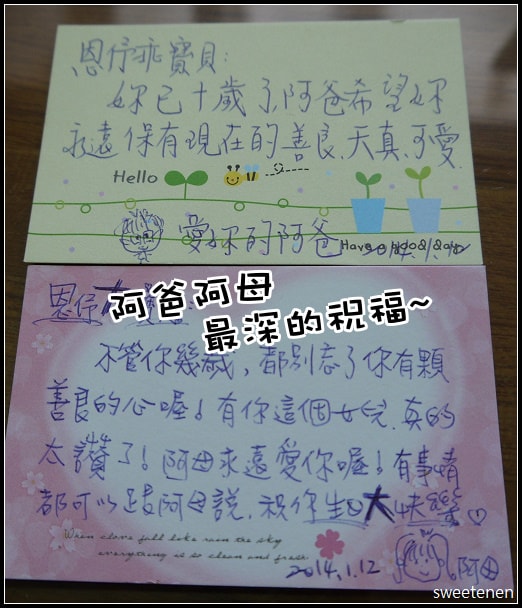 恩伃乖寶貝：
妳已十歲了,阿爸希望妳
永遠保有現在的善良、天真、可愛
Hello
愛妳的阿爸
Have a good day
恩伃大
阿爸阿母
最深的祝福~
不管你幾歲，都別忘了你有顆
善良的心喔！有你這個女兒，真的
太讚了！阿母永遠愛你喔！有事情
都可以跟阿母說，祝你生日大快樂♡
When clove fall lake rain the sky
everything is so clean and fresh.
2014.1.12
阿母
sweetenen